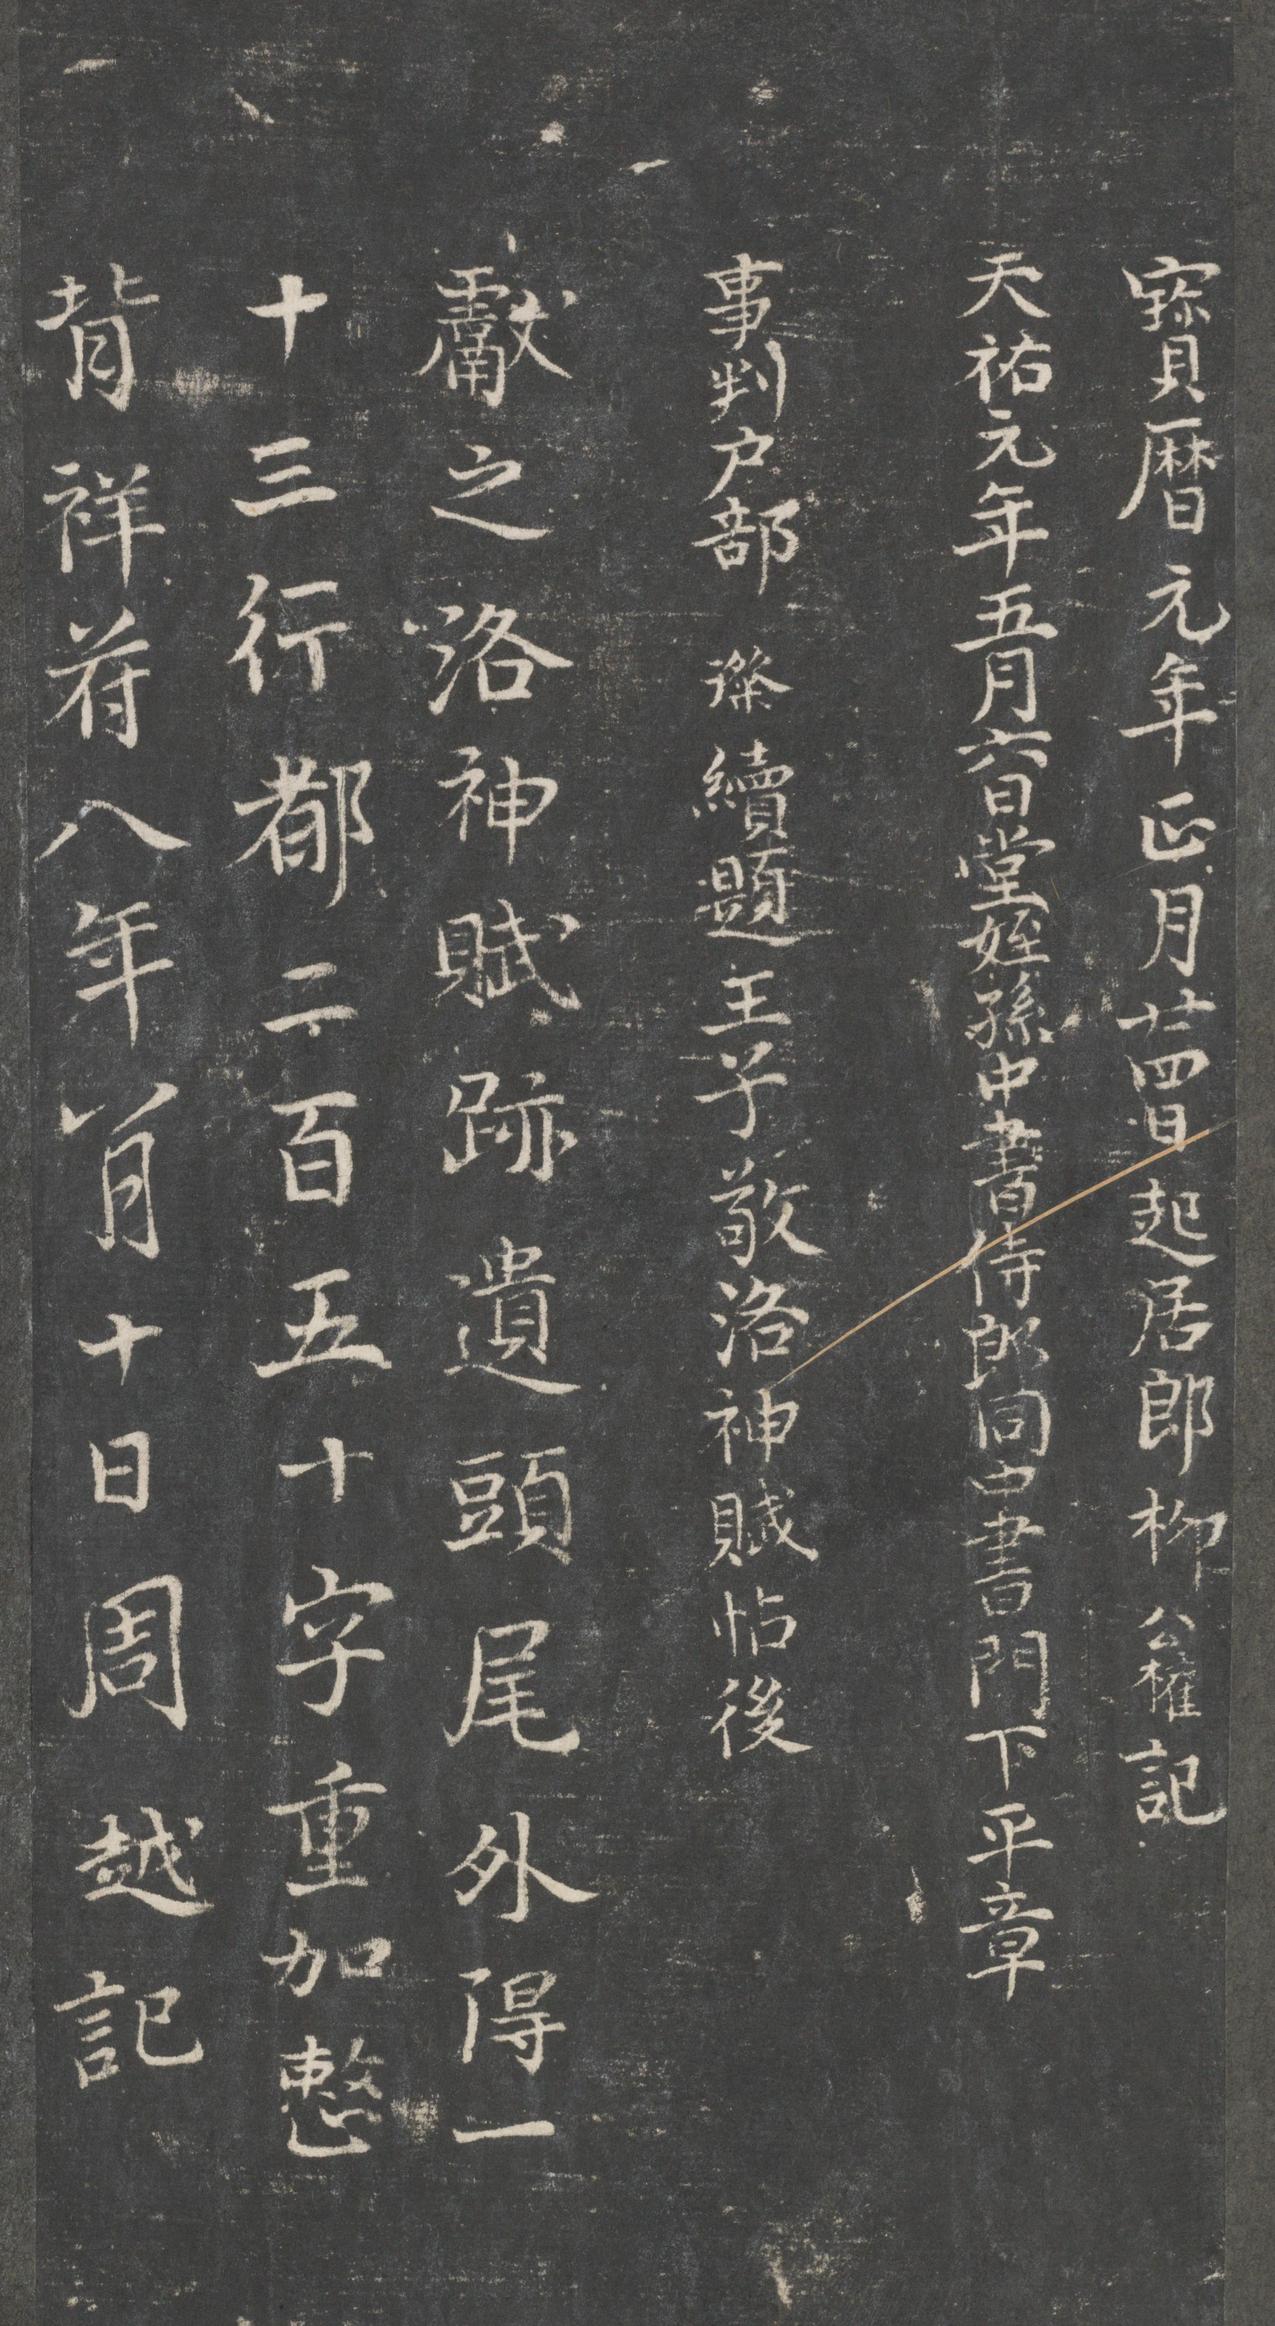 寳曆元年正月廿四日起居郎柳公權記
天祐元年五月六日堂姪孫中書侍郎同中書門下平章
事判户部璨續題王子敬洛神賦帖後
獻之洛神賦跡遺頭尾外得一
十三行都二百五十字重加整
背祥符八年一月十日周越記